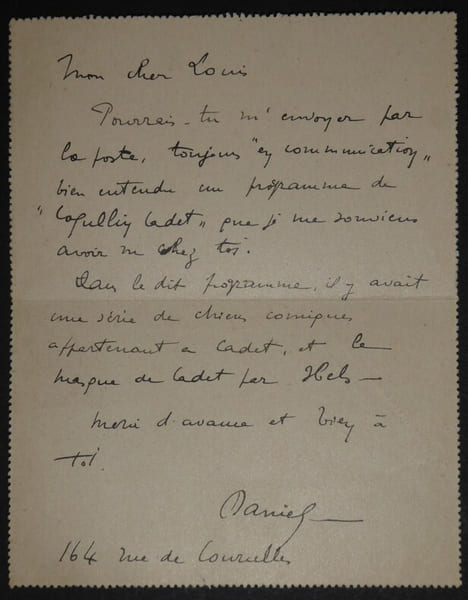 Mon cher Louis
Pourrais-tu m'envoyer par
la poste, toujours "en communication"
bien entendu un programme de
"Coquelin Cadet" que je me souviens
avoir vu chez toi.
Dans le dit programme, il y avait
une série de chiens comiques
appartenant a Cadet, et le
masque de Cadet par Hels —
merci d'avance et bien à
toi.
Daniel
164 rue de Courcelles